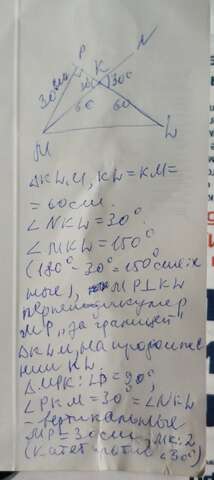 P
N
K
30см
30°
30°
60
60
M
L
ΔKLM, KL = KM =
= 60 см.
∠NKL = 30°.
∠MKL = 150°
(180° - 30° = 150° смеж
ные), MP⊥KL
перпендикуляр
MP „за границей"
ΔKLM, на продолже
нии KL.
ΔMPK: ∠P = 90°,
∠PKM = 30 = ∠NKL
- вертикальные
MP = 30 см, MK:2
(катет против ∠30°)